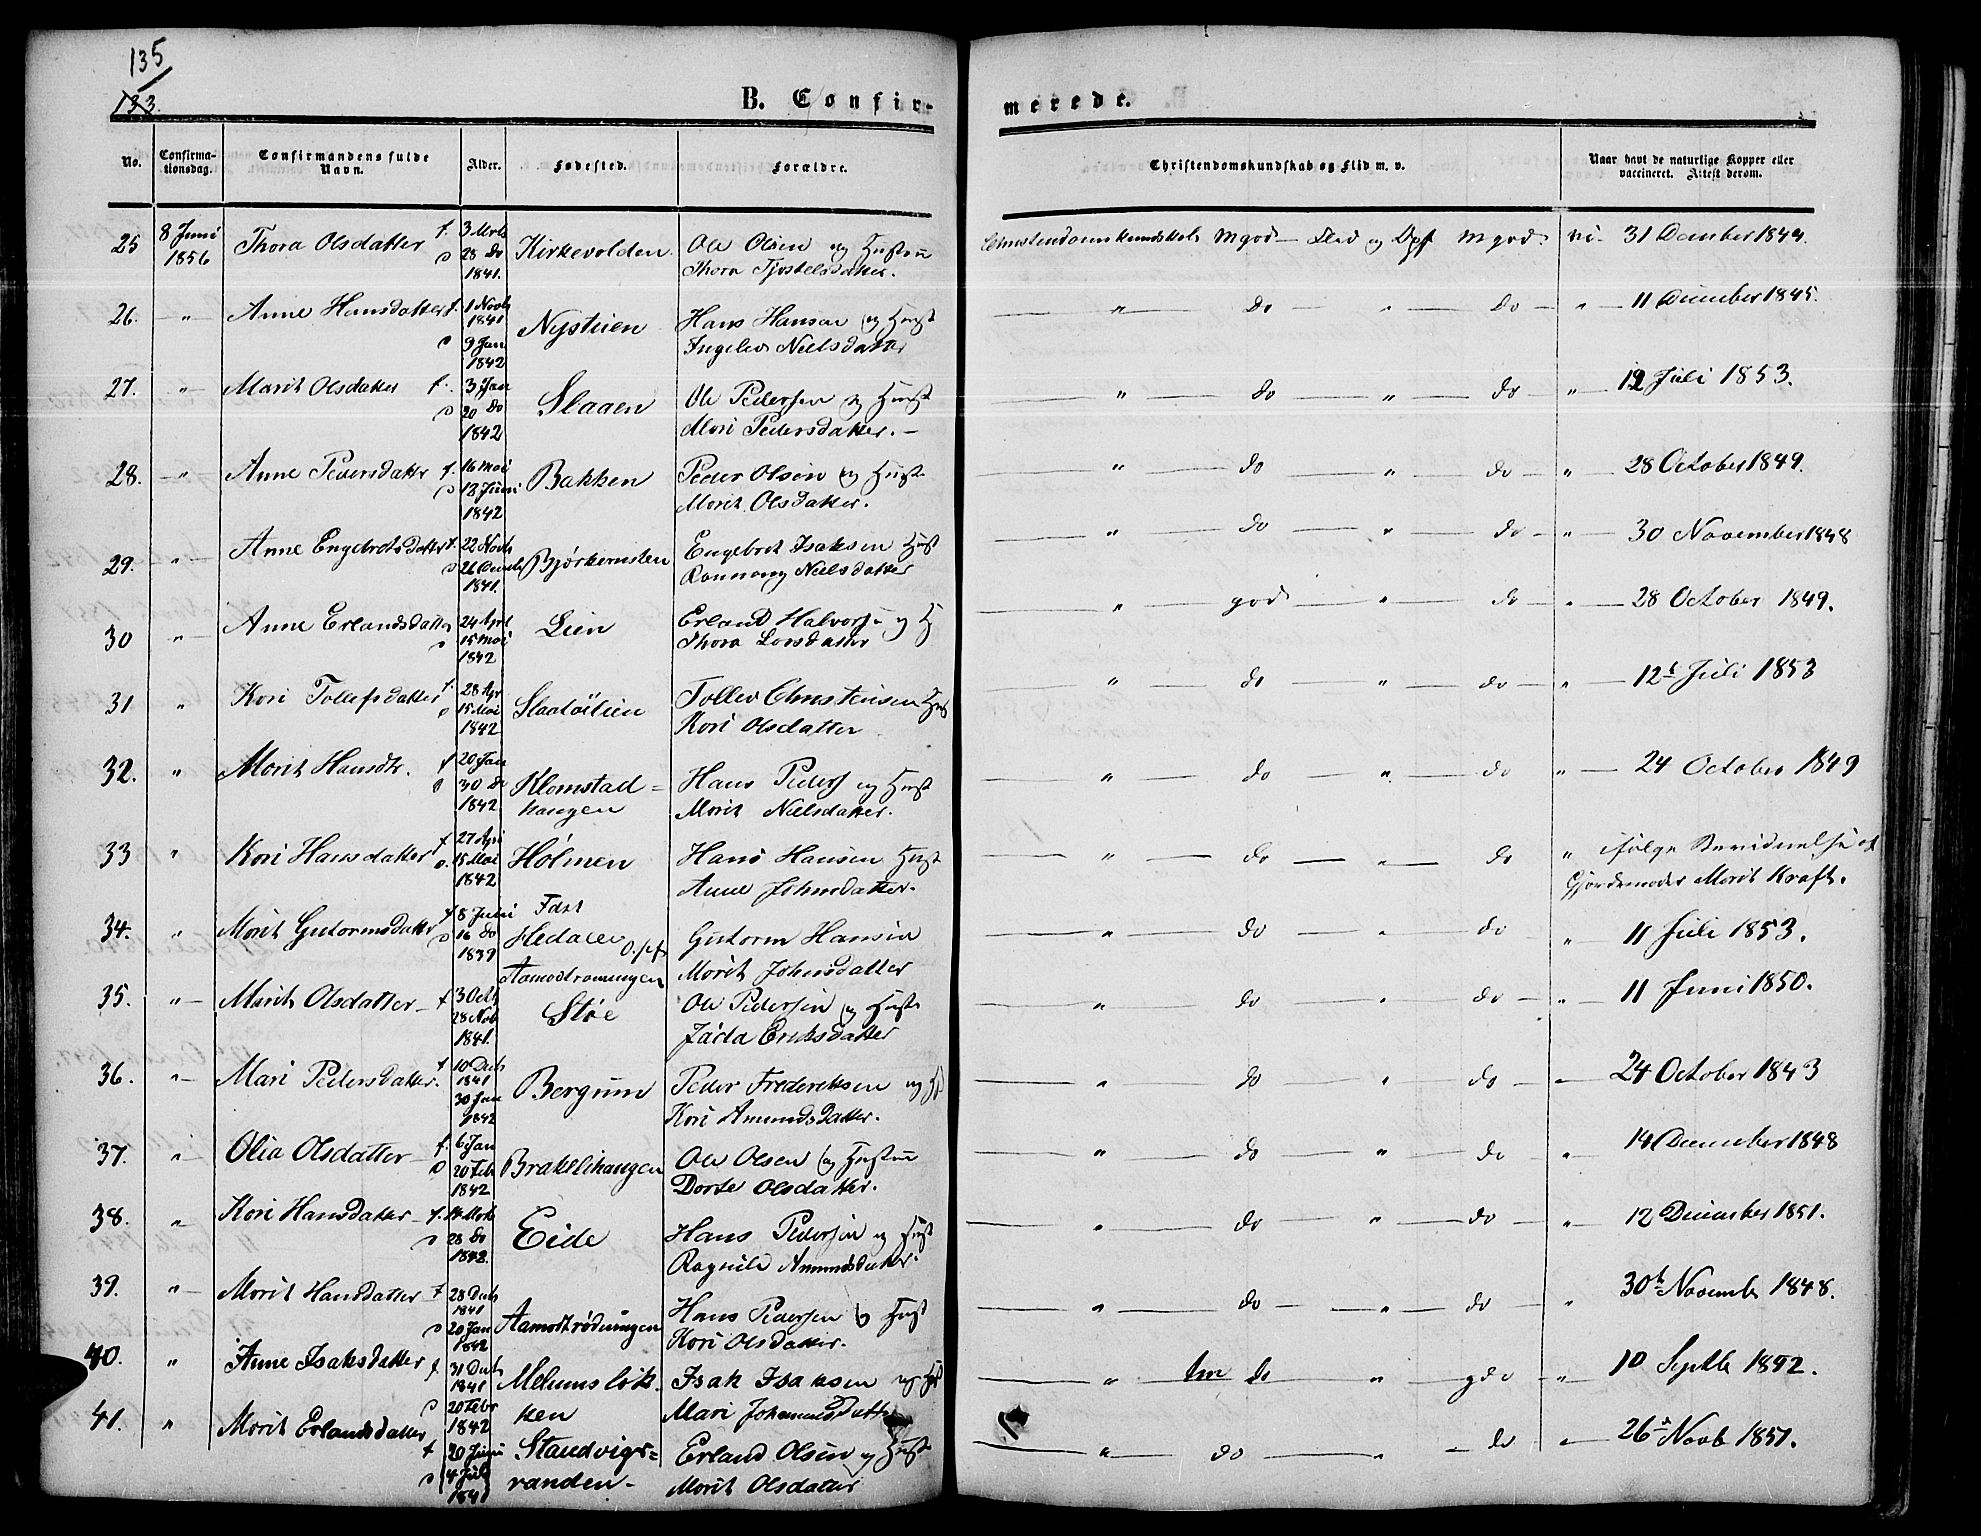 135
133.
B. Confir-
merede.
No.
Confirma-
tionsdag.
Confirmandens fulde
Navn.
Alder.
Fødested.
Forældre.
Christendomskundskab og Flid m. v.
Naar havt de naturlige Kopper eller
vaccineret. Attest derom.
25 8 Juni 1856 Thora Olsdatter f. 3 Mrts d 28 do 1841. Kirkevolden Ole Olsen og Hustru
Thora Tjostelsdatter.
Christendomskundskab Mgod — Flid og Opf Mgod. 31 December 1844.
26. " Anne Hansdatter f. 1 Novb 1841 d 9 Jan 1842 Nysteien Hans Hansen og Hust
Ingelev Nielsdatter
" do " do " 11 December 1845.
27. " Marit Olsdatter f. 3 Jan d 20 do 1842 Slaaen Ole Pedersen og Hust
Mari Pedersdatter. —
" do " do " 12 Juli 1853.
28. " Anne Pedersdatter f. 16 Mai d 12 Juni 1842 Bakken Peder Olsen og Hust
Morit Olsdatter.
" do " do " 28 October 1849.
29. " Anne Engebretsdatter f. 22 Novb d 26 Decemb 1841. Bjørkernsten Engebret Isaksen Hust
Rannong Nielsdatter
" do " do " 30 November 1848
30 " Anne Erlandsdatter 24 Aprl d 15 Mai 1842 Lien Erland Halvors og H
Thora Larsdatter
" god " do " 28 October 1849.
31 " Kori Tollefsdatter f. 28 Apr d 15 Mai 1842 Tollev Christensen Hust
Kori Olsdatter
" do " do " 12t Juli 1853
32. " Morit Hansdtr. f 20 Jan d 30 do 1842 Klomstad=
haugen
Hans Peders og Hust
Morit Nielsdatter.
" do " do " 24 October 1849
33 " Kori Hansdatter f 27 Apri d. 15 Mai 1842 Holmen Hans Hansen Hust
Anne Johnsdatter.
" do " do " ifølge Bevidnelse af
Gjordemoder Morit Kraft.
34. " Morit Gutormsdatter f 8 Juni d 16 do 1839 Født
Hedalen
Aamodtrønningen
Gutorm Hansen
Morit Johnsdatter
" do " do " 11 Juli 1853.
35. " Morit Olsdatter f 3 Octb 28 Nov 1841. Støe Ole Pedersen og Hust
Jøda Eriksdatter
" do " do " 11 Juni 1850.
36. " Mari Pedersdatter. f 10 Decb 1841 30 Jan 1842 Bergum Peder Frederiksen og Hst
Kori Amundsdatter.
" do " do " 24 October 1843
37. " Olia Olsdatter f. 6 Jan d 20 Feb 1842 Braklihaugen Ole Olsen og Hustru
Dorte Olsdatter.
" do " do " 14 December 1848
38. " Kori Hansdatter f. 14 Mrts d 28 do 1842. Eide Hans Pedersen og Hust
Ragnild Amundsdatter.
" do " do " 12 December 1851.
39. " Morit Hansdatter f 28 Decb 1841 d 20 Jan 1842 Aamodtrødningen Hans Pedersen og Hust
Kori Olsdatter.
" do " do " 30t Novemb 1848.
40. " Anne Isaksdatter f. 31 Decb 1841 d 20 Febr 1842 Melumsløk
ken
Isak Isaksen og Hst
Mari Johannesdatter
" do " gdo " 10 Septbr 1852.
41. " Morit Erlandsdatter f 20 Juni d 4 Juli 1841 Standvigs=
randen -
Erland Olsen og Hust
Morit Olsdatter
" do " do 26 Novb 1851.